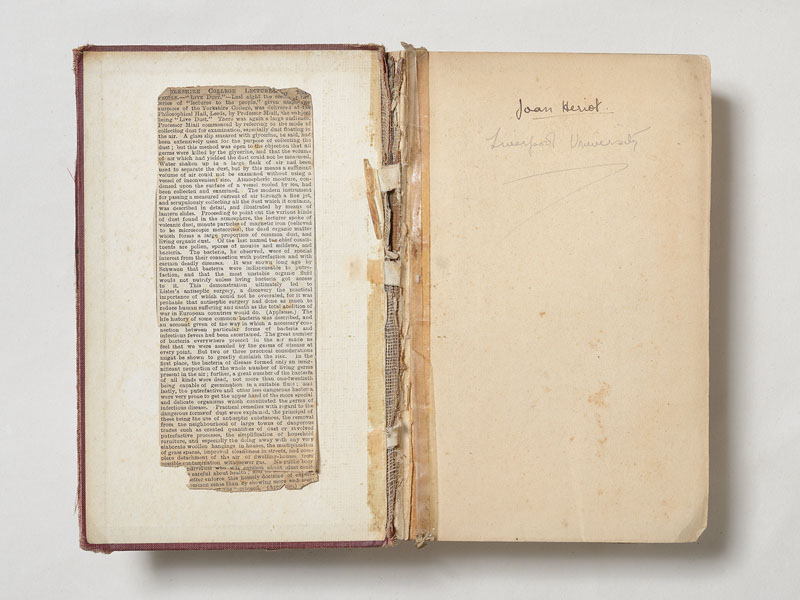 YORKSHIRE COLLEGE LECTURES
PEOPLE.—"LIVE DUST."—Last night the
series of "lectures to the people," given under the
auspices of the Yorkshire College, was delivered at the
Philosophical Hall, Leeds, by Professor Miall, the subject
being "Live Dust." There was again a large audience.
Professor Miall commenced by referring to the mode of
collecting dust for examination, especially dust floating in
the air. A glass slip smeared with glycerine, he said, had
been extensively used for the purpose of collecting the
dust; but this method was open to the objection that all
germs were killed by the glycerine, and that the volume
of air which had yielded the dust could not be measured.
Water shaken up in a large flask of air had been
used to separate the dust, but by this means a sufficient
volume of air could not be examined without using a
vessel of inconvenient size. Atmospheric moisture, con-
densed upon the surface of a vessel cooled by ice, had
been collected and examined. The modern instrument
for passing a measured current of air through a fine jet,
and scrupulously collecting all the dust which it contains,
was described in detail, and illustrated by means of
lantern slides. Proceeding to point out the various kinds
of dust found in the atmosphere, the lecturer spoke of
volcanic dust, minute particles of magnetic iron (believed
to be microscopic meteorites), the dead organic matter
which forms a large proportion of common dust, and
living organic dust. Of the last named the chief consti-
tuents are pollen, spores of moulds and mildews, and
bacteria. The bacteria, he observed, were of special
interest from their connection with putrefaction and with
certain deadly diseases. It was shown long ago by
Schwann that bacteria were indispensable to putre-
faction, and that the most unstable organic fluid
would not putrify unless living bacteria got access
to it. This demonstration ultimately led to
Lister's antiseptic surgery, a discovery the practical
importance of which could not be overrated, for it was
probable that antiseptic surgery had done as much to
reduce human suffering and death as the total abolition of
war in European countries would do. (Applause.) The
life history of some common bacteria was described, and
an account given of the way in which a necessary con-
nection between particular forms of bacteria and
infectious fevers had been ascertained. The great number
of bacteria everywhere present in the air make us
feel that we were assailed by the germs of disease at
every point. But two or three practical considerations
might be shown to greatly diminish the risk. In the
first place, the bacteria of disease formed only an insig-
nificant proportion of the whole number of living germs
present in the air; further, a great number of the bacteria
of all kinds were dead, not more than one-twentieth
being capable of germination in a suitable fluid; and
lastly, the putrefactive and other less dangerous bacteria
were very prone to get the upper hand of the more special
and delicate organisms which constituted the germs of
infectious disease. Practical remedies with regard to the
dangerous forms of dust were explained, the principal of
these being the use of antiseptic substances, the removal
from the neighbourhood of large towns of dangerous
trades such as created quantities of dust or involved
putrefactive processes, the simplification of household
furniture, and especially the doing away with any very
elaborate woollen hangings in houses, the multiplication
of grass spaces, improved cleanliness in streets, and com-
plete detachment of the air of dwelling-houses from
possible contamination with sewer gas. No public body
careful about health
enforce this homely doctrine of
common sense than by showing more
Joan Heriot.
Liverpool University